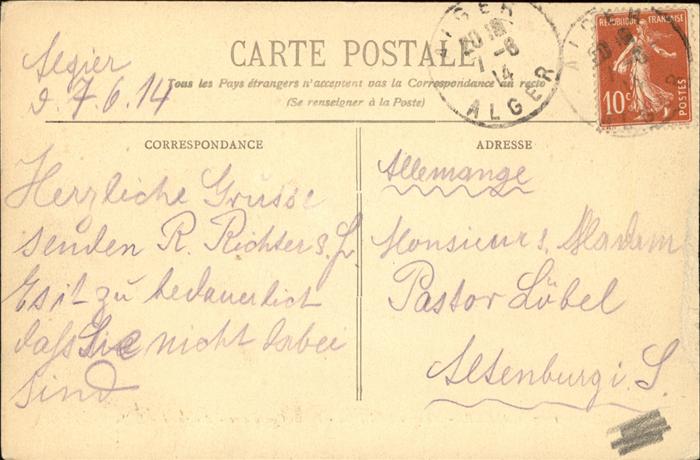 Algier
d. 7.6.14
CARTE POSTALE
Tous les Pays étrangers n'acceptent pas la Correspondance au recto
(Se renseigner à la Poste)
ALGER
20
7-6
14
ALGER
REPUBLIQUE FRANÇAISE
10c
POSTES
CORRESPONDANCE
Herzliche Grüsse
senden R. Richter
Es ist zu bedauerlich
dass Sie nicht dabei
sind
ADRESSE
Allemange
Monsieur s. Madam
Pastor Löbel
Altenburg i. S.